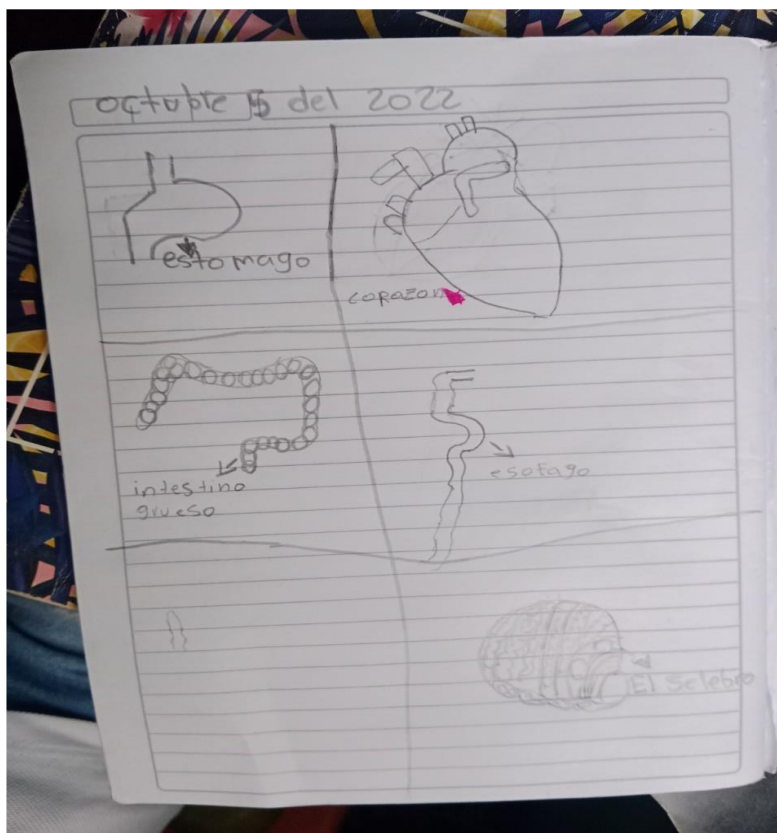 octubre 5 del 2022
estomago
corazon
intestino
grueso
esofago
El Selebro